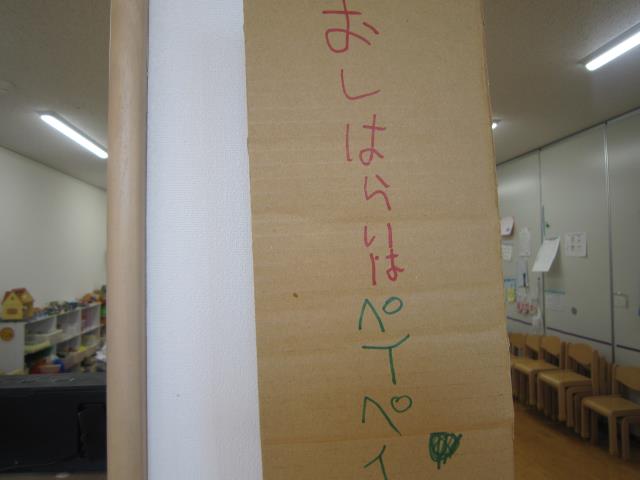 おしはらいは
ペイペイ